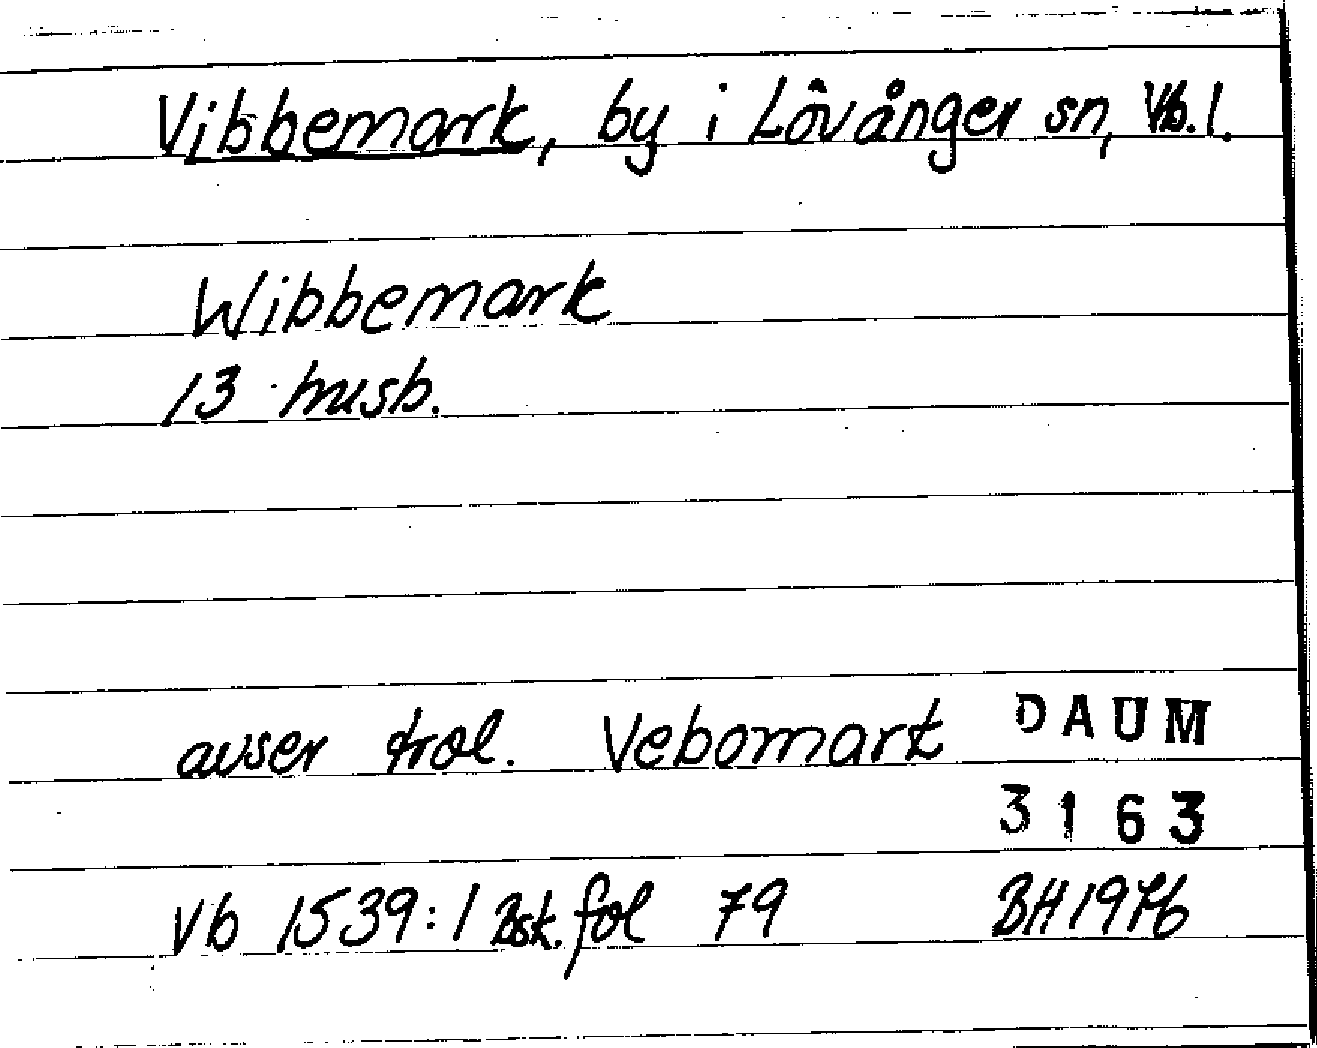 Vibbemark, by i Lövånger sn, Vb.l.
Wibbemark
13 husb.
avser trol. Vebomark
DAUM
3163
Vb 1539:1 Bsk. fol 79 BH 1976